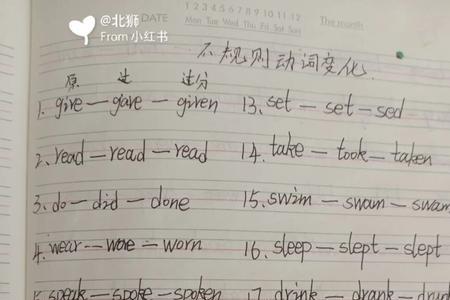 @北狮
From 小红书
DATE
1 2 3 4 5 6 7 8 9 10 11 12
Mon Tue Wed Thu Fri Sat Sun
The month
不规则动词变化
原 过 过分
1. give — gave — given 13. set — set — sed
2. read — read — read 14. take — took — taken
3. do — did — done 15. swim — swam — swam
4. wear — wore — worn 16. sleep — slept — slept
speak — spoke — spoken 17. drink — drank — drunk